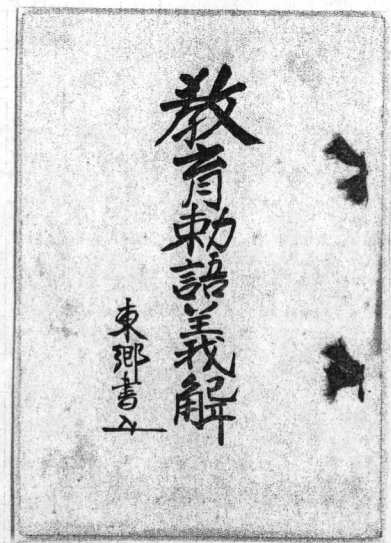 教育勅語義解
東郷書入